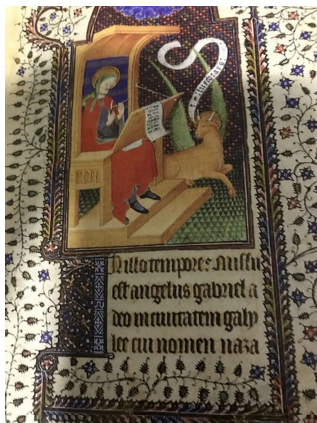 In illo tempore: Missus
est angelus gabriel a
deo in ciuitatem galy
lee cui nomen naza